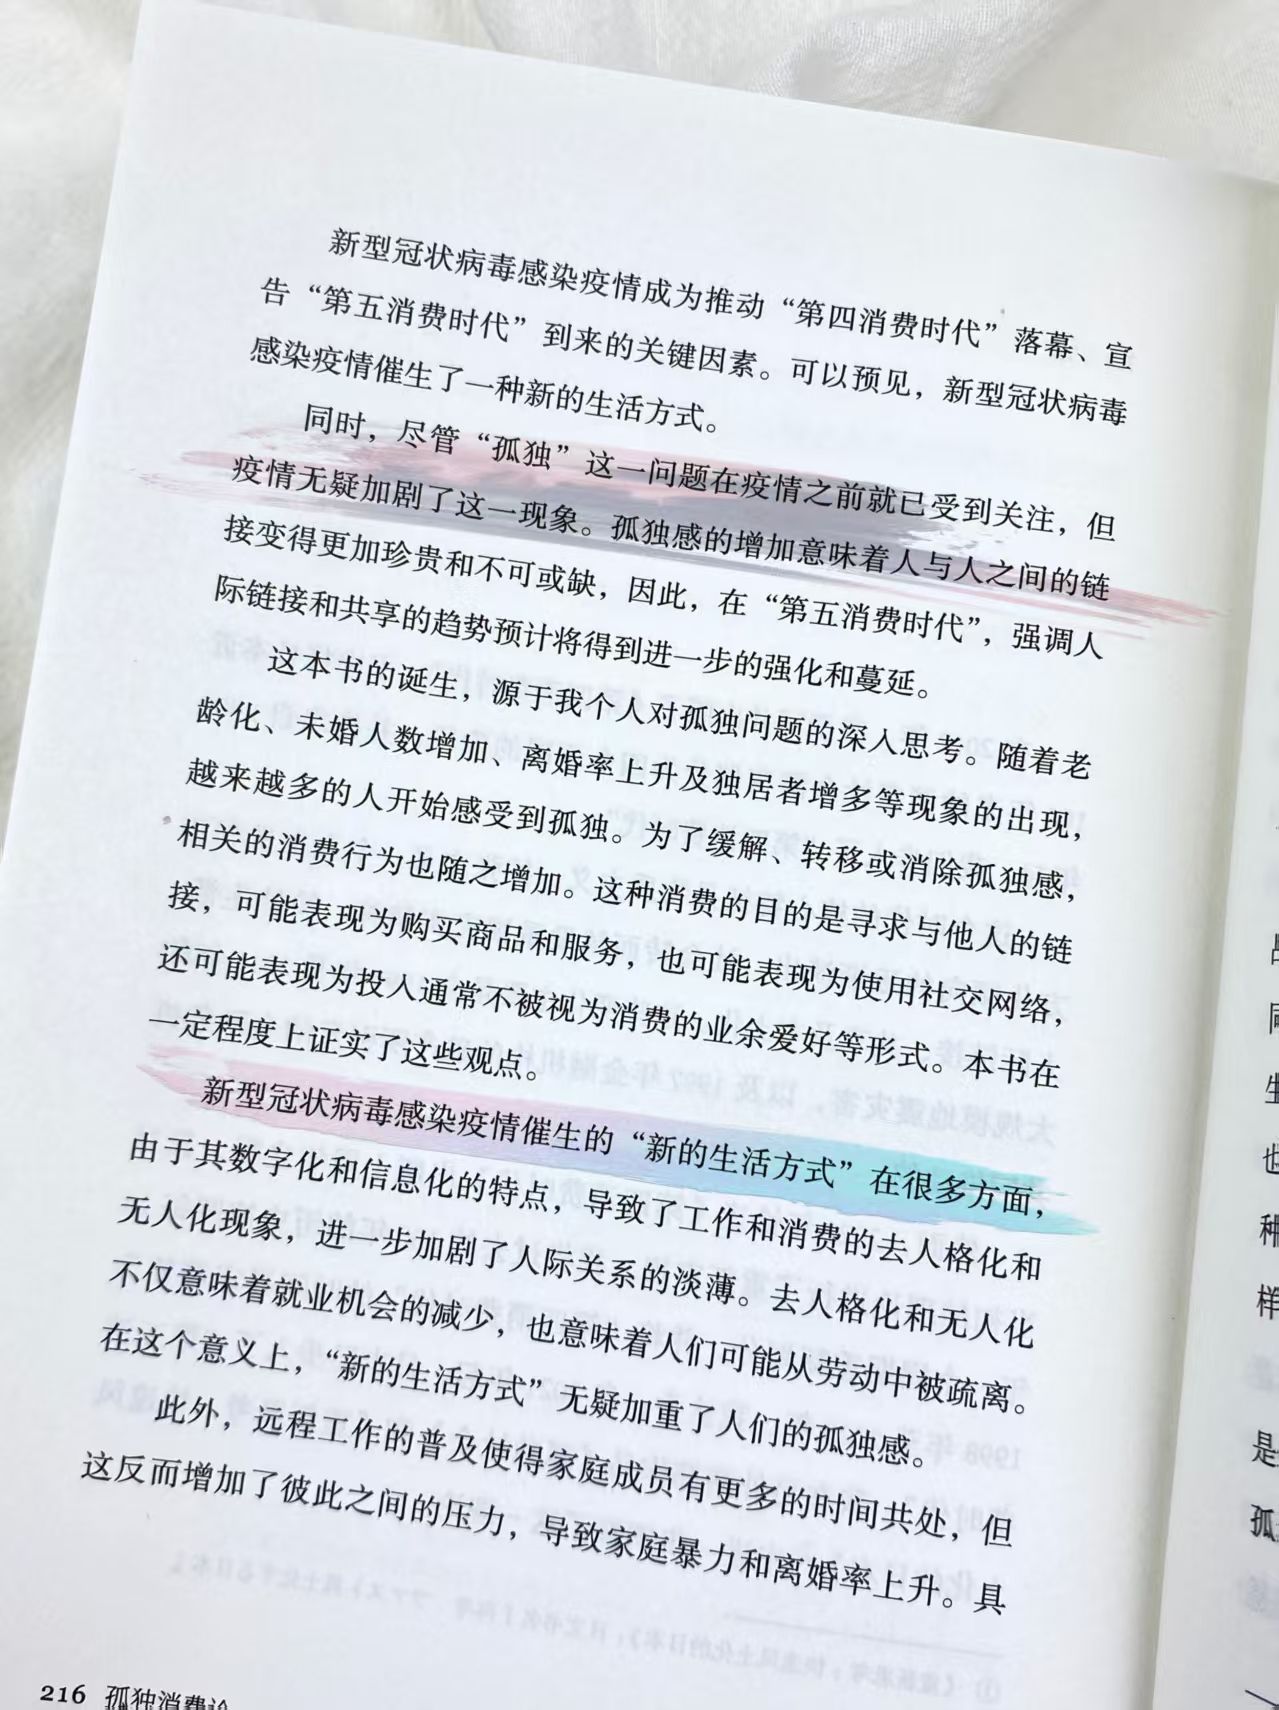 新型冠状病毒感染疫情成为推动“第四消费时代”落幕、宣
告“第五消费时代”到来的关键因素。可以预见，新型冠状病毒
感染疫情催生了一种新的生活方式。
同时，尽管“孤独”这一问题在疫情之前就已受到关注，但
疫情无疑加剧了这一现象。孤独感的增加意味着人与人之间的链
接变得更加珍贵和不可或缺，因此，在“第五消费时代”，强调人
际链接和共享的趋势预计将得到进一步的强化和蔓延。
这本书的诞生，源于我个人对孤独问题的深入思考。随着老
龄化、未婚人数增加、离婚率上升及独居者增多等现象的出现，
越来越多的人开始感受到孤独。为了缓解、转移或消除孤独感，
相关的消费行为也随之增加。这种消费的目的是寻求与他人的链
接，可能表现为购买商品和服务，也可能表现为使用社交网络，
还可能表现为投入通常不被视为消费的业余爱好等形式。本书在
一定程度上证实了这些观点。
新型冠状病毒感染疫情催生的“新的生活方式”在很多方面，
由于其数字化和信息化的特点，导致了工作和消费的去人格化和
无人化现象，进一步加剧了人际关系的淡薄。去人格化和无人化
不仅意味着就业机会的减少，也意味着人们可能从劳动中被疏离。
在这个意义上，“新的生活方式”无疑加重了人们的孤独感。
此外，远程工作的普及使得家庭成员有更多的时间共处，但
这反而增加了彼此之间的压力，导致家庭暴力和离婚率上升。具
216 孤独消费论
也
种
样
是